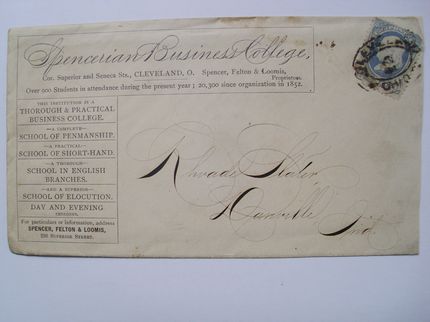 Spencerian Business College,
Cor. Superior and Seneca Sts., CLEVELAND, O. Spencer, Felton & Loomis,
Proprietors.
Over 900 Students in attendance during the present year; 20,300 since organization in 1852.
THIS INSTITUTION IS A
THOROUGH & PRACTICAL
BUSINESS COLLEGE.
—A COMPLETE—
SCHOOL OF PENMANSHIP.
—A PRACTICAL—
SCHOOL OF SHORT-HAND.
—A THOROUGH—
SCHOOL IN ENGLISH
BRANCHES.
—AND A SUPERIOR—
SCHOOL OF ELOCUTION.
DAY AND EVENING
SESSIONS.
For particulars or information, address
SPENCER, FELTON & LOOMIS,
SUPERIOR STREET.
CLEVELAND
OHIO
Slater
Danville
Ind.